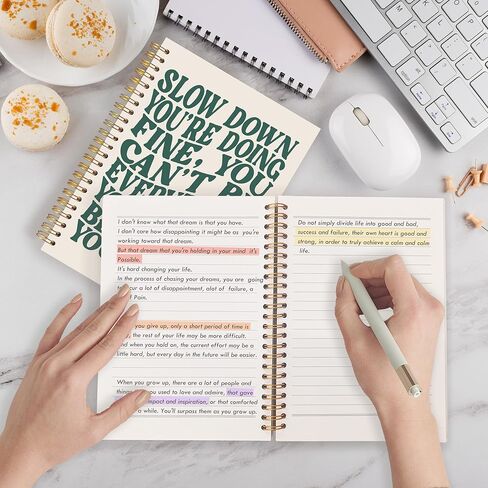 SLOW DOWN
YOU'RE DOING
FINE, YOU
CAN'T
I don't know what that dream is that you have.
I don't care how disappointing it might be as you're
working toward that dream.
But that dream that you're holding in your mind it's
Possible.
It's hard changing your life.
In the process of chasing your dreams, you are going
cur a lot of disappointment, alot of failure, a
of Pain.
you give up, only a short period of time is
, the rest of your life may be more difficult.
and when you hold on, the current effort may be a
little hard, but every day in the future will be easier.
When you grow up, there are a lot of people and
things you used to love and admire, that gave
impact and inspiration, or that comforted
a while. You'll surpass them as you grow up.
Do not simply divide life into good and bad,
success and failure, their own heart is good and
strong, in order to truly achieve a calm and calm
life.